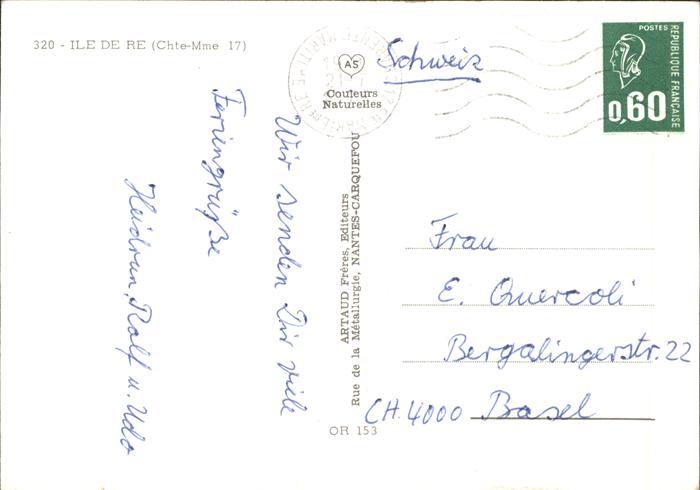 320 - ILE DE RE (Chte-Mme 17)
AS
Couleurs
Naturelles
Schweiz
POSTES
REPUBLIQUE FRANÇAISE
0,60
Wir senden Dir viele
Feriengrüße
Heidrun, Rolf u. Udo
ARTAUD Frères, Editeurs
Rue de la Métallurgie, NANTES-CARQUEFOU
Frau
E. Quercoli
Bergalingerstr. 22
CH. 4000 Basel
OR 153